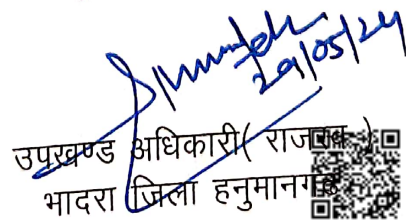 29/05/24
उपखण्ड अधिकारी( राजस्व )
भादरा जिला हनुमानगढ़